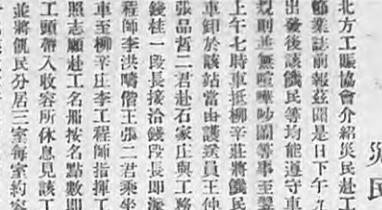 災民
北方工賑協會介紹災民赴工
節業誌前報茲聞是日下午九
出發後該饑民等均能遵守車
規則並無喧嘩吵鬧等事至翌
上午七時車抵柳辛莊將饑民
車卸於該站當由護送員王仲
張品哲二君赴石家庄與工務
錢桂一段長接洽錢段長即派
程師李洪疇偕王張二君乘坐
車至柳辛庄李工程師指揮工
照志願赴工名冊按名點數開
工頭帶入收容所休息見該工
並將饑民分居三室每室約容